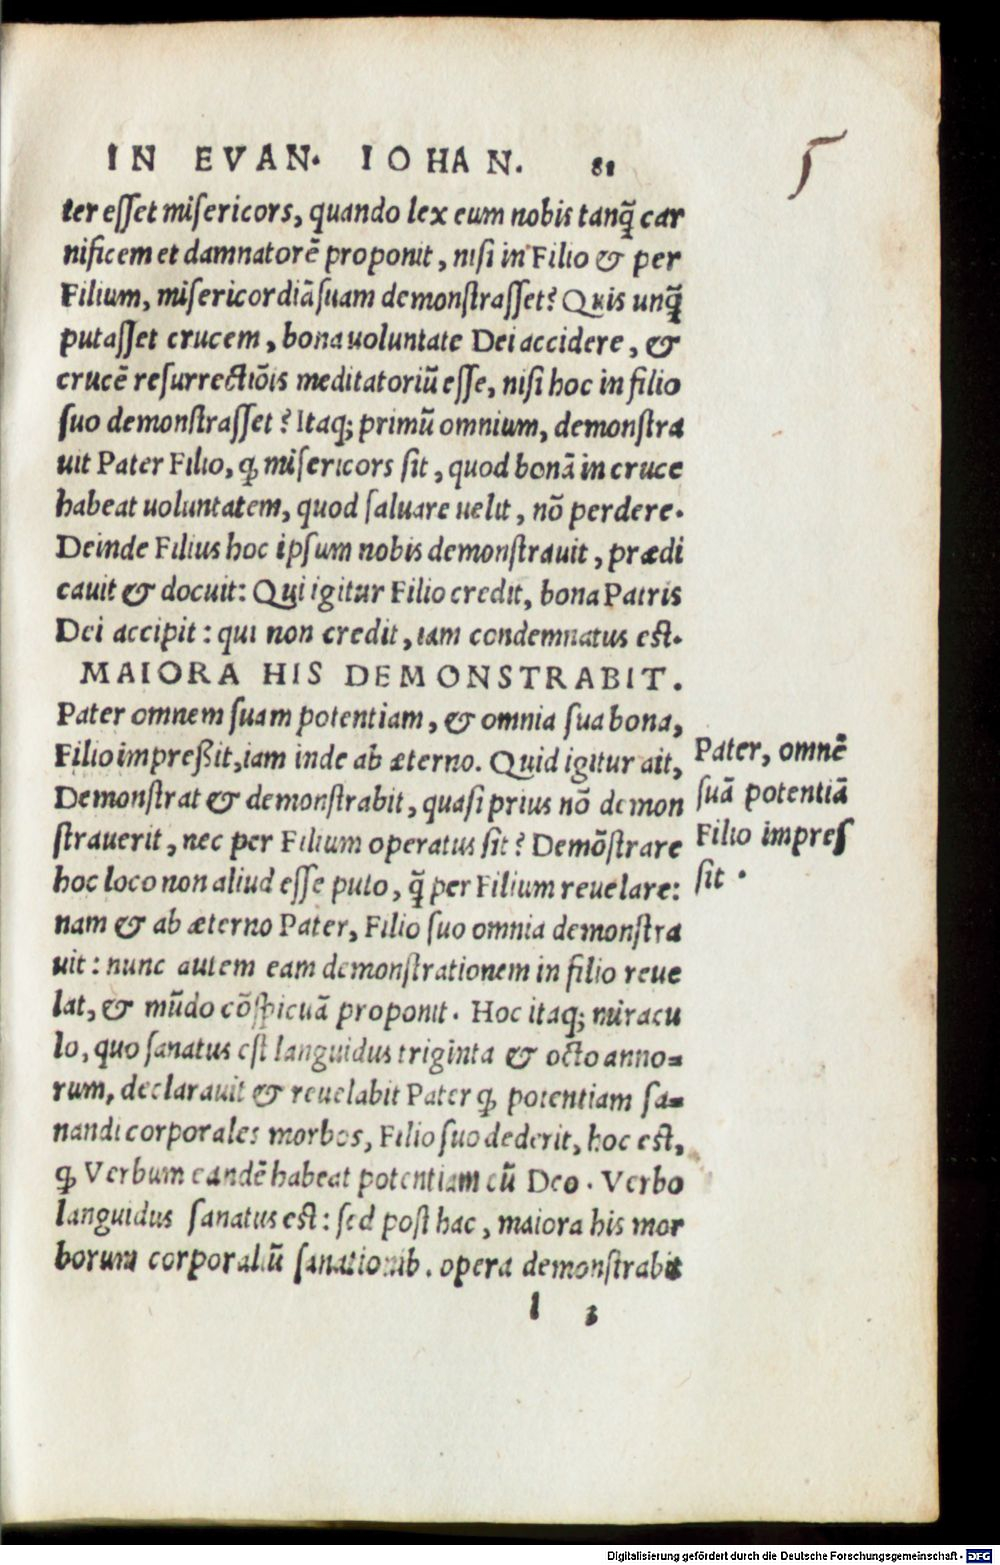 IN EVAN. IOHAN. 81
5
ter esset misericors, quando lex eum nobis tanq̃ car
nificem et damnatorẽ proponit, nisi in Filio & per
Filium, misericordiã suam demonstrasset? Quis unq̃
putasset crucem, bona uoluntate Dei accidere, &
crucẽ resurrectiõis meditatoriũ esse, nisi hoc in filio
suo demonstrasset? Itaq; primũ omnium, demonstra
uit Pater Filio, ꝙ misericors sit, quod bonã in cruce
habeat uoluntatem, quod saluare uelit, nõ perdere.
Deinde Filius hoc ipsum nobis demonstrauit, prædi
cauit & docuit: Qui igitur Filio credit, bona Patris
Dei accipit: qui non credit, iam condemnatus est.
MAIORA HIS DEMONSTRABIT.
Pater omnem suam potentiam, & omnia sua bona,
Filio impreßit, iam inde ab æterno. Quid igitur ait,
Demonstrat & demonstrabit, quasi prius nõ demon
strauerit, nec per Filium operatus sit? Demõstrare
hoc loco non aliud esse puto, q̃ per Filium reuelare:
nam & ab æterno Pater, Filio suo omnia demonstra
uit: nunc autem eam demonstrationem in filio reue
lat, & mũdo cõspicuã proponit. Hoc itaq; miracu
lo, quo sanatus est languidus triginta & octo anno=
rum, declarauit & reuelabit Pater ꝙ potentiam sa=
nandi corporales morbos, Filio suo dederit, hoc est,
ꝙ Verbum eandẽ habeat potentiam cũ Deo. Verbo
languidus sanatus est: sed post hac, maiora his mor
borum corporaliũ sanationib. opera demonstrabit
l 3
Pater, omnẽ
suã potentiã
Filio impres
sit.
Digitalisierung gefördert durch die Deutsche Forschungsgemeinschaft - DFG